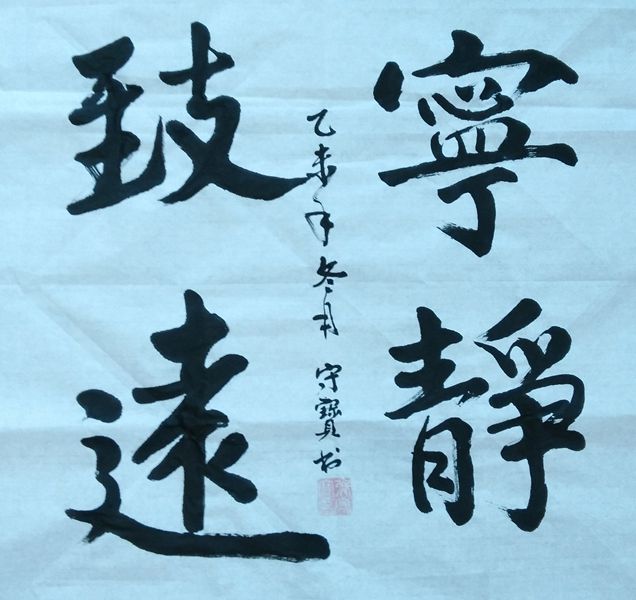 寧靜
致遠
乙未年冬月 守寶书